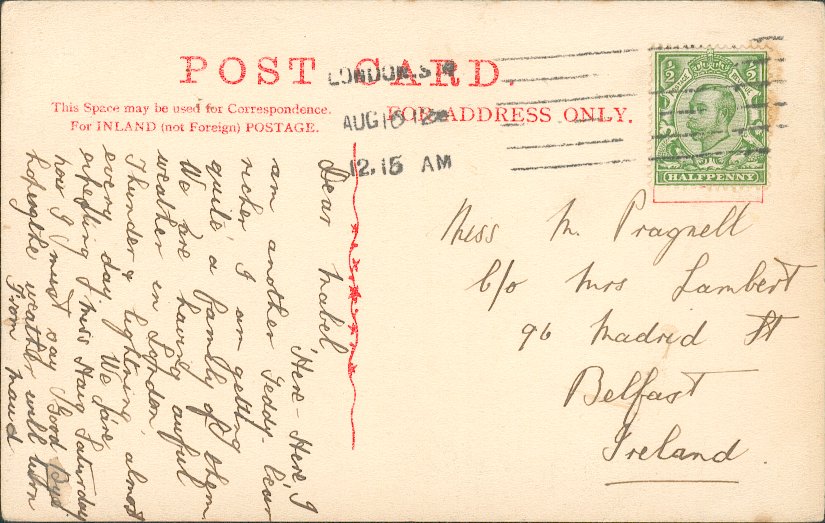 POST CARD.
LONDON. S.W
AUG 16 12
12.15 AM
This Space may be used for Correspondence.
For INLAND (not Foreign) POSTAGE.
FOR ADDRESS ONLY.
½ ½
HALFPENNY
Dear Mabel
Here - Here I
am another Teddy-bear
richer I am getting
quite a family of them.
We are having awful
weather in London
Thunder & lightning almost
every day. We are
expecting Miss Haig Saturday
now I must say Good Bye
hopeing the weather will turn
From Maud
Miss M. Pragnell
C/o Mrs Lambert
96 Madrid St
Belfast
Ireland.